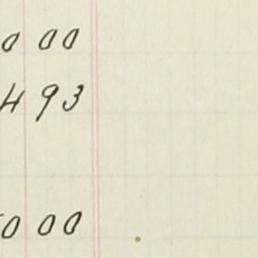 0 00
4 93
0 00